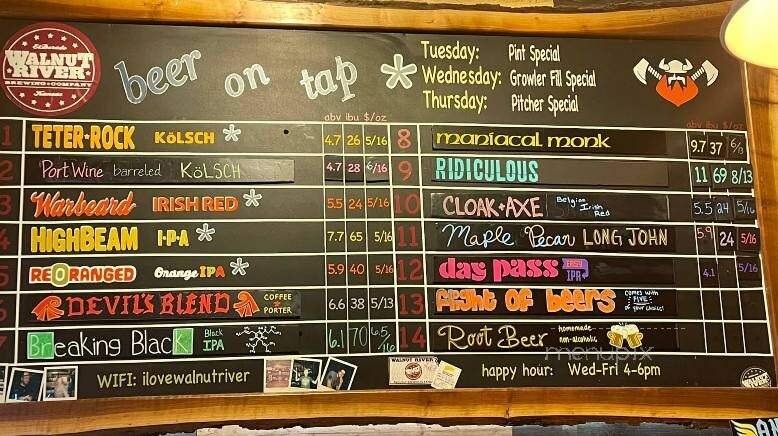 El Dorado
WALNUT RIVER
BREWING COMPANY
Kansas
beer on tap *
Tuesday: Pint Special
Wednesday: Growler Fill Special
Thursday: Pitcher Special
abv ibu $/oz
1 TETER·ROCK KÖLSCH * 4.7 26 5/16
2 Port Wine barreled KÖLSCH 4.7 28 6/16
3 Warbeard IRISH RED * 5.5 24 5/16
4 HIGHBEAM I·P·A * 7.7 65 5/16
5 REORANGED Orange IPA * 5.9 40 5/16
6 DEVIL'S BLEND COFFEE + PORTER 6.6 38 5/13
7 Breaking Black Black IPA 6.1 70 6.5/16
abv ibu $/oz
8 maniacal monk 9.7 37 6/8
9 RIDICULOUS 11 69 8/13
10 CLOAK+AXE Belgian Irish Red 5.5 24 5/16
11 Maple Pecan LONG JOHN 5.9 24 5/16
12 day pass EASY IPA 4.1 5/16
13 flight of beers comes with FIVE of your choice!
14 Root Beer homemade non-alcoholic
menupix
WIFI: ilovewalnutriver
WALNUT RIVER
happy hour: Wed-Fri 4-6pm